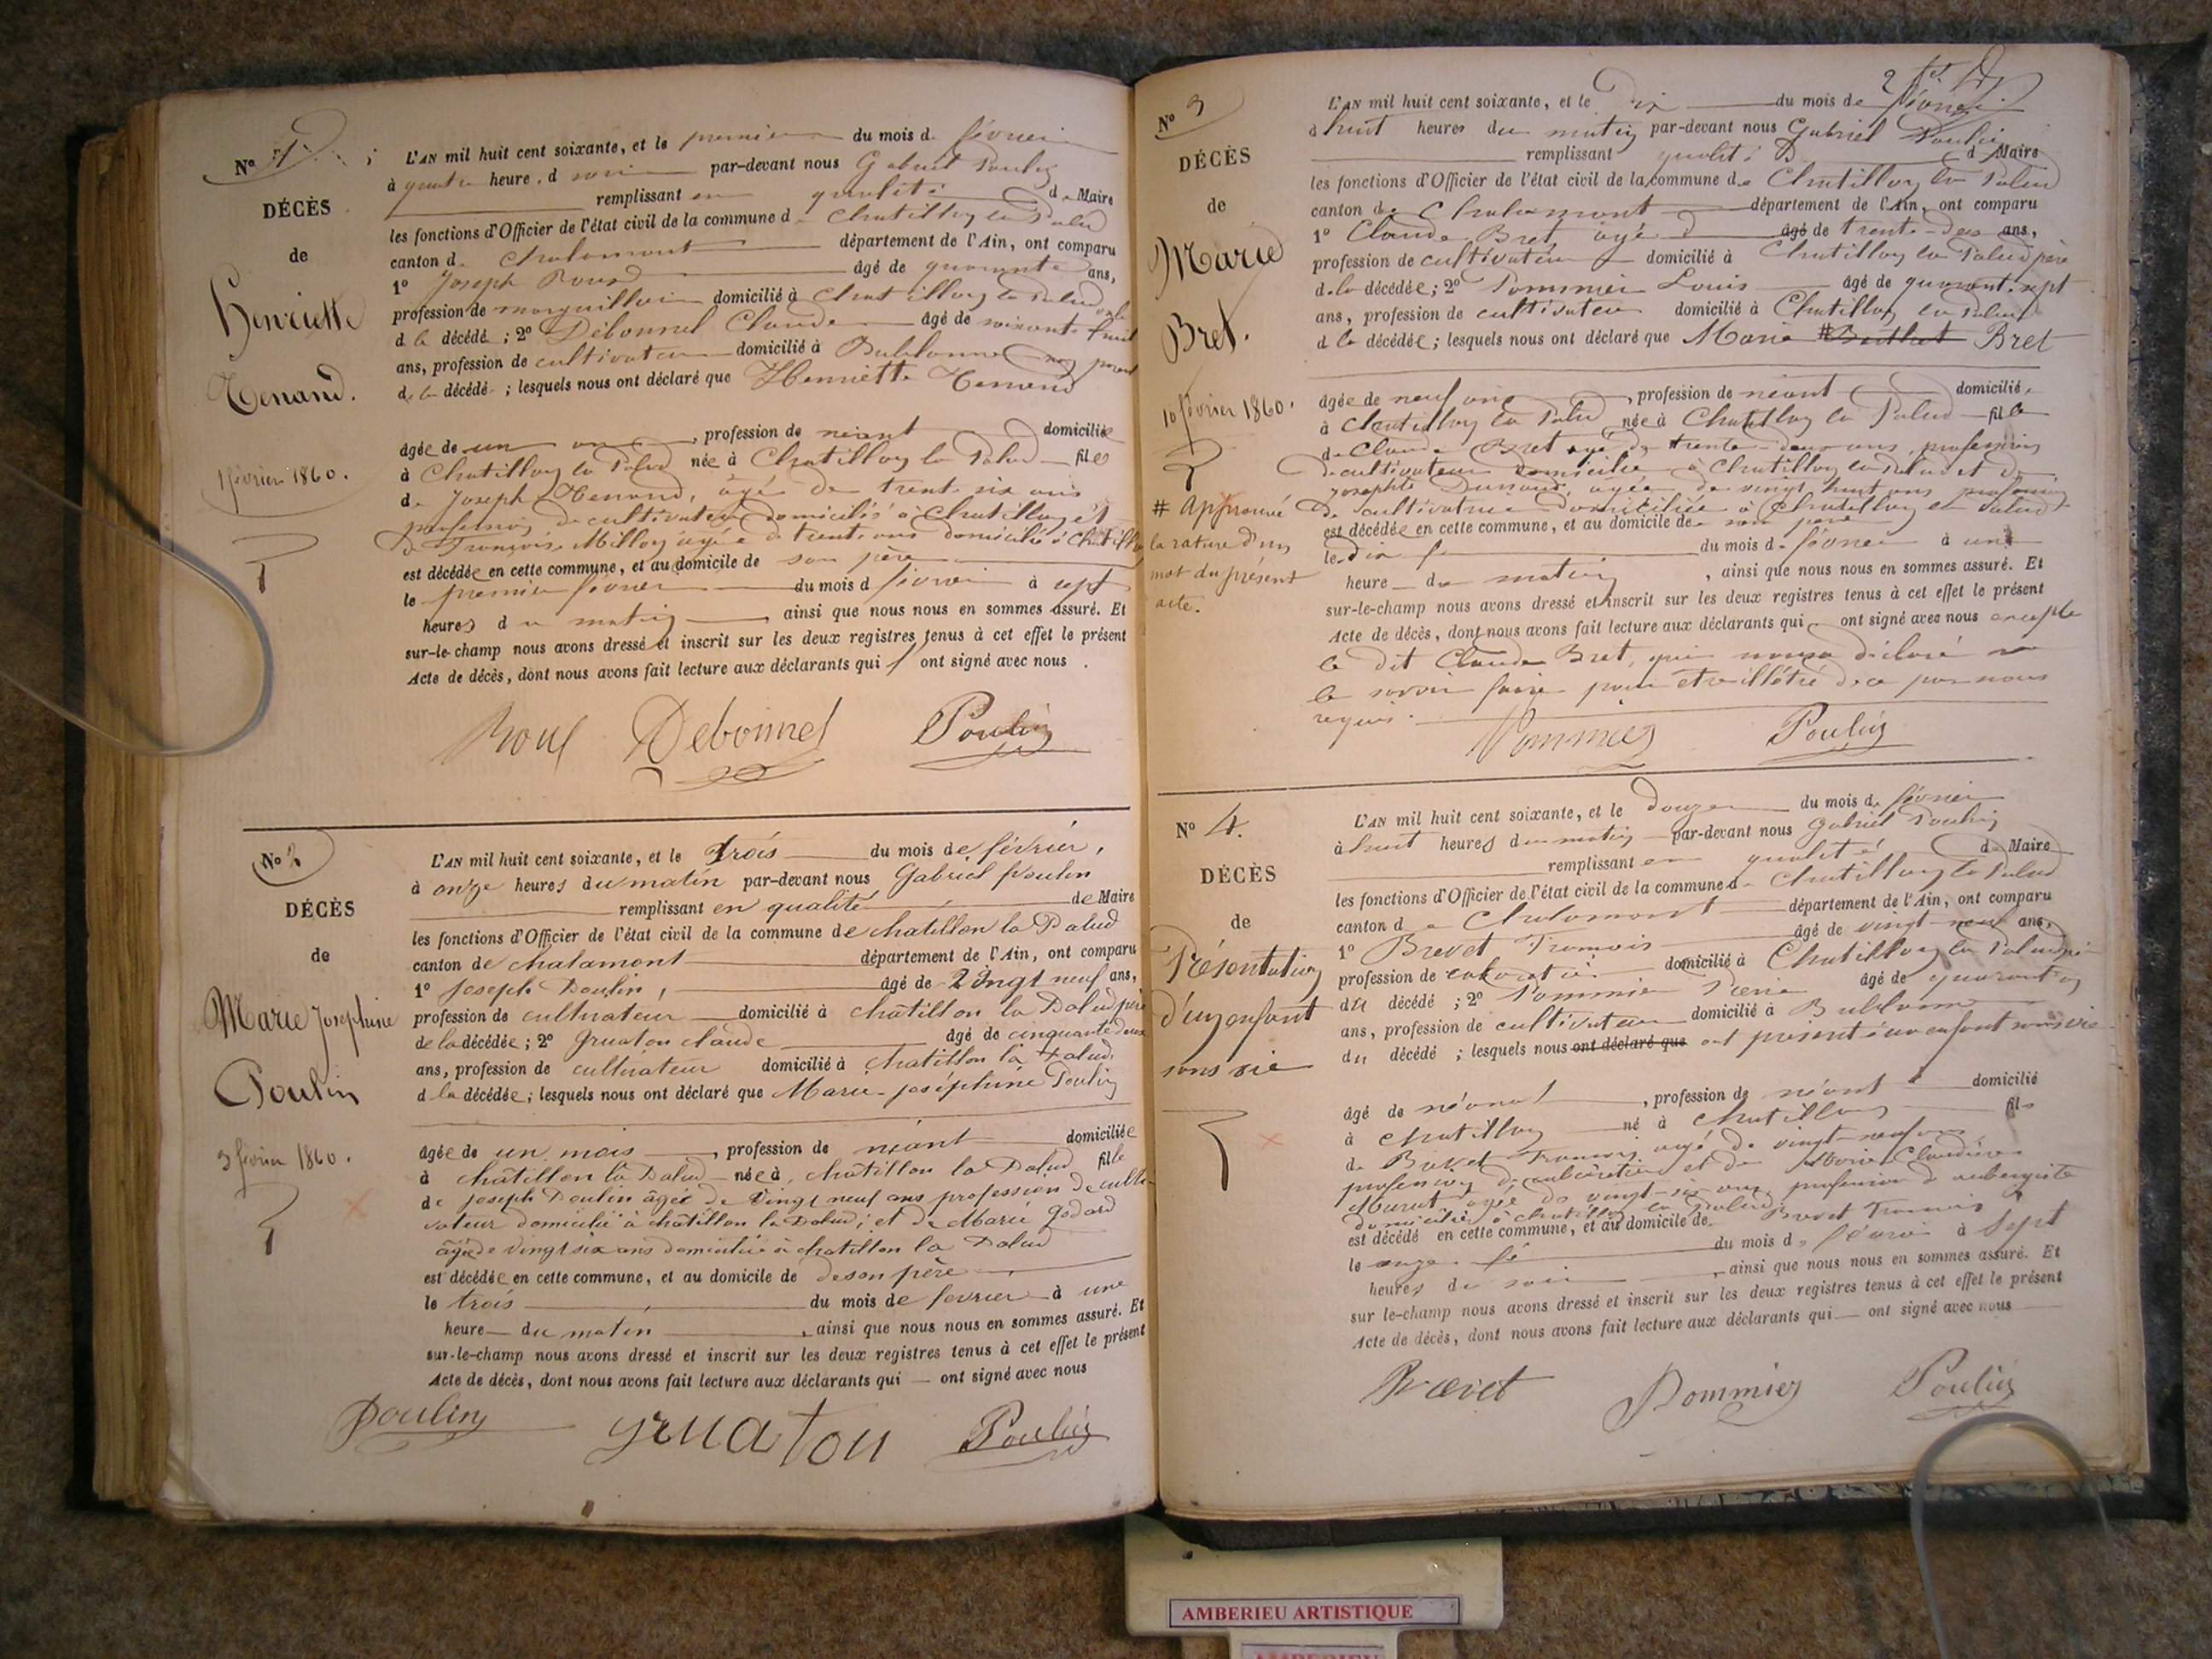 No 1
DÉCÈS
de
Henriette
Tenand.
1 février 1860.
L'AN mil huit cent soixante, et le premier du mois d février
à quatre heure, d soir par-devant nous Gabriel Poulin
remplissant en qualité de Maire
les fonctions d'Officier de l'état civil de la commune d Chatillon la Palud
canton d Chalamont département de l'Ain, ont comparu
1° Joseph Roux âgé de quarante ans,
profession de marguillier domicilié à Chatillon la Palud
d la décédé ; 2° Debonnel Claude âgé de soixante huit
ans, profession de cultivateur domicilié à Bublanne non parent
de la décédé ; lesquels nous ont déclaré que Henriette Tenand
âgée de un an, profession de néant domicilié
à Chatillon la Palud née à Chatillon la Palud fille
de Joseph Tenand, âgé de trente six ans
profession de cultivateur domicilié à Chatillon et
de Françoise Millon âgée de trente ans domicilié à Chatillon
est décédée en cette commune, et au domicile de son père
le premier février du mois d février à sept
heures du matin, ainsi que nous nous en sommes assuré. Et
sur-le-champ nous avons dressé et inscrit sur les deux registres tenus à cet effet le présent
Acte de décès, dont nous avons fait lecture aux déclarants qui ont signé avec nous .
Roux Debonnel Poulin
No 2
DÉCÈS
de
Marie Josephine
Poulin
3 février 1860.
L'AN mil huit cent soixante, et le trois du mois de février,
à onze heures du matin par-devant nous Gabriel Poulin
remplissant en qualité de Maire
les fonctions d'Officier de l'état civil de la commune de chatillon la Palud
canton de chalamont département de l'Ain, ont comparu
1° Joseph Poulin, âgé de vingt neuf ans,
profession de cultivateur domicilié à châtillon la Palud père
de la décédée ; 2° Gruaton claude âgé de cinquante deux
ans, profession de cultivateur domicilié à chatillon la Palud
d la décédée ; lesquels nous ont déclaré que Marie-joséphine Poulin
âgée de un mois, profession de néant domiciliée
à châtillon la Palud née à, châtillon la Palud fille
de joseph Poulin âgée de vingt neuf ans profession de culti-
vateur domicilié à châtillon la Palud; et de Marie Godard
âgée de vingt six ans domiciliée à chatillon la Palud
est décédée en cette commune, et au domicile de de son père
le trois du mois de fevrier à une
heure du matin, ainsi que nous nous en sommes assuré. Et
sur-le-champ nous avons dressé et inscrit sur les deux registres tenus à cet effet le présent
Acte de décès, dont nous avons fait lecture aux déclarants qui — ont signé avec nous
Poulin gruaton Poulin
No 3
DÉCÈS
de
Marie
Bret.
10 février 1860.
# Approuvé
la rature d'un
mot du présent
acte.
L'AN mil huit cent soixante, et le dix du mois de février
à huit heures du matin par-devant nous Gabriel Poulin
remplissant qualité d Maire
les fonctions d'Officier de l'état civil de la commune de Chatillon la Palud
canton de Chalamont département de l'Ain, ont comparu
1° Claude Bret âgé d âgé de trente-deux ans,
profession de cultivateur domicilié à Chatillon la Palud père
de la décédée ; 2° Pommier Louis âgé de quarante sept
ans, profession de cultivateur domicilié à Chatillon la Palud
d la décédée ; lesquels nous ont déclaré que Marie # Bret
âgée de neuf ans, profession de néant domicilié
à Chatillon la Palud née à Chatillon la Palud fille
de Claude Bret âgé de trente-deux ans, profession
de cultivateur domicilié à Chatillon la Palud et de
Josephte âgée de vingt huit ans profession
de cultivatrice domiciliée à Chatillon la Palud
est décédée en cette commune, et au domicile de son père
le dix du mois de février à une
heure du matin, ainsi que nous nous en sommes assuré. Et
sur-le-champ nous avons dressé et inscrit sur les deux registres tenus à cet effet le présent
Acte de décès, dont nous avons fait lecture aux déclarants qui ont signé avec nous excepté
le dit Claude Bret, qui nous a déclaré ne
le savoir faire pour être illétré de ce par nous
requis.
Pommier Poulin
No 4.
DÉCÈS
de
Présentation
d'un enfant
sans vie
L'AN mil huit cent soixante, et le douze du mois de février
à huit heures du matin par-devant nous Gabriel Poulin
remplissant en qualité de Maire
les fonctions d'Officier de l'état civil de la commune d Chatillon la Palud
canton d Chalamont département de l'Ain, ont comparu
1° Brevet François âgé de vingt-neuf ans,
profession de domicilié à Chatillon la Palud père
du décédé ; 2° Pommier Pierre âgé de quarante
ans, profession de cultivateur domicilié à Bublanne
du décédé ; lesquels nous ont déclaré que ont présenté un enfant sans vie
âgé de néant, profession de néant domicilié
à Chatillon né à Chatillon fils
de Brevet François âgé de vingt-neuf ans
profession de et de Marie Claudine
Murat âgée de vingt-six ans profession d aubergiste
domicilié à chatillon la Palud
est décédé en cette commune, et au domicile de Brevet François
le onze du mois de février à sept
heures du soir, ainsi que nous nous en sommes assuré. Et
sur le-champ nous avons dressé et inscrit sur les deux registres tenus à cet effet le présent
Acte de décès, dont nous avons fait lecture aux déclarants qui — ont signé avec nous
Brevet Pommier Poulin
AMBERIEU ARTISTIQUE
AMBERIEU